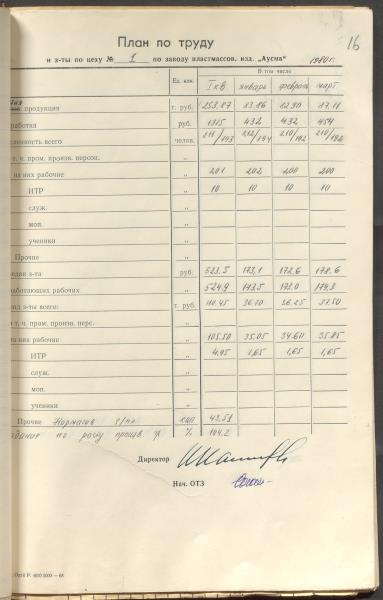 16
План по труду
и з-ты по цеху № 1 по заводу пластмасс. изд. „Аусма" 1980 г.
Ед. изм. В том числе
I кв январь февраль март
продукция т. руб. 253.87 83.86 82.90 87.11
работка руб. 1315 432 432 454
ленность всего челов. 211/193 212/194 210/192 210/192
т. ч. пром. произв. персон. „
них рабочие „ 201 202 200 200
ИТР „ 10 10 10 10
служ. „
моп. „
ученики „
Прочие „
з-та руб. 523.5 173,1 172,6 178.6
работающих рабочих „ 524.9 173.5 173,0 179,3
з-ты всего: т. руб. 110.45 36.70 36.25 37.50
т. ч. пром. произв. перс. „
них рабочие „ 105.50 35.05 34.60 35.85
ИТР „ 4.95 1,65 1,65 1.65
служ. „
моп. „
ученики „
Прочие Норматив з/пл коп 43.51
по росту произв. тр % 104.2
Директор
Нач. ОТЗ